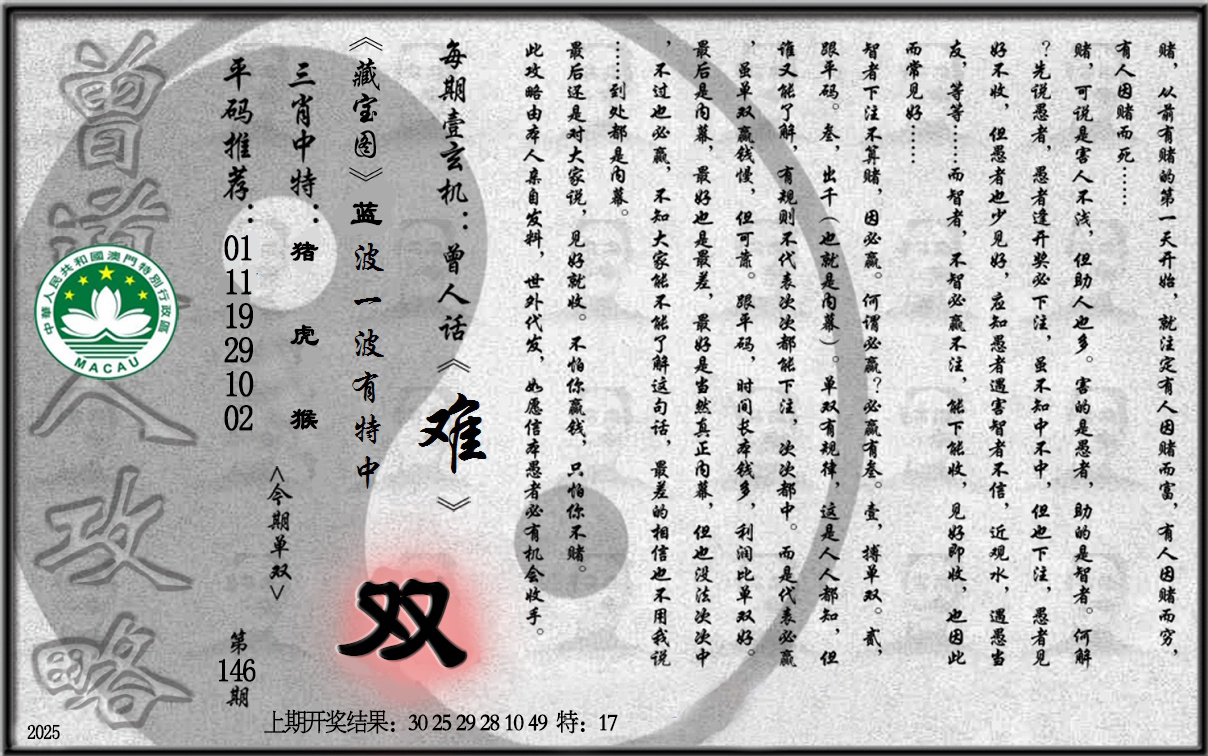 赌，从前有赌的第一天开始，就注定有人因赌而富，有人因赌而穷，
有人因赌而死……
赌，可说是害人不浅，但助人也多。害的是愚者，助的是智者。何解
？先说愚者，愚者逢开奖必下注，虽不知中不中，但也下注，愚者见
好不收，但愚者也少见好，应知愚者遇害智者不信，近观水，遇愚当
友，等等……而智者，不智必赢不注，能下能收，见好即收，也因此
而常见好……
智者下注不算赌，因必赢。何谓必赢？必赢有叁。壹，搏单双。贰，
跟平码。叁，出千（也就是内幕）。单双有规律，这是人人都知，但
谁又能了解，有规则不代表次次都能下注，次次都中。而是代表必赢
，虽单双赢钱慢，但可靠。跟平码，时间长本钱多，利润比单双好。
最后是内幕，最好也是最差，最好是当然真正内幕，但也没法次次中
，不过也必赢，不知大家能不能了解这句话，最差的相信也不用我说
……到处都是内幕。
最后还是对大家说，见好就收。不怕你赢钱，只怕你不赌。
此攻略由本人亲自发料，世外代发，如愿信本愚者必有机会收手。
每期壹玄机：曾人话《难》
《藏宝图》蓝波一波有特中
双
三肖中特：猪虎猴
<今期单双>
平码推荐：
01
11
19
29
10
02
第
146
期
曾道人攻略
中華人民共和國澳門特別行政區
MACAU
上期开奖结果：30 25 29 28 10 49 特：17
2025